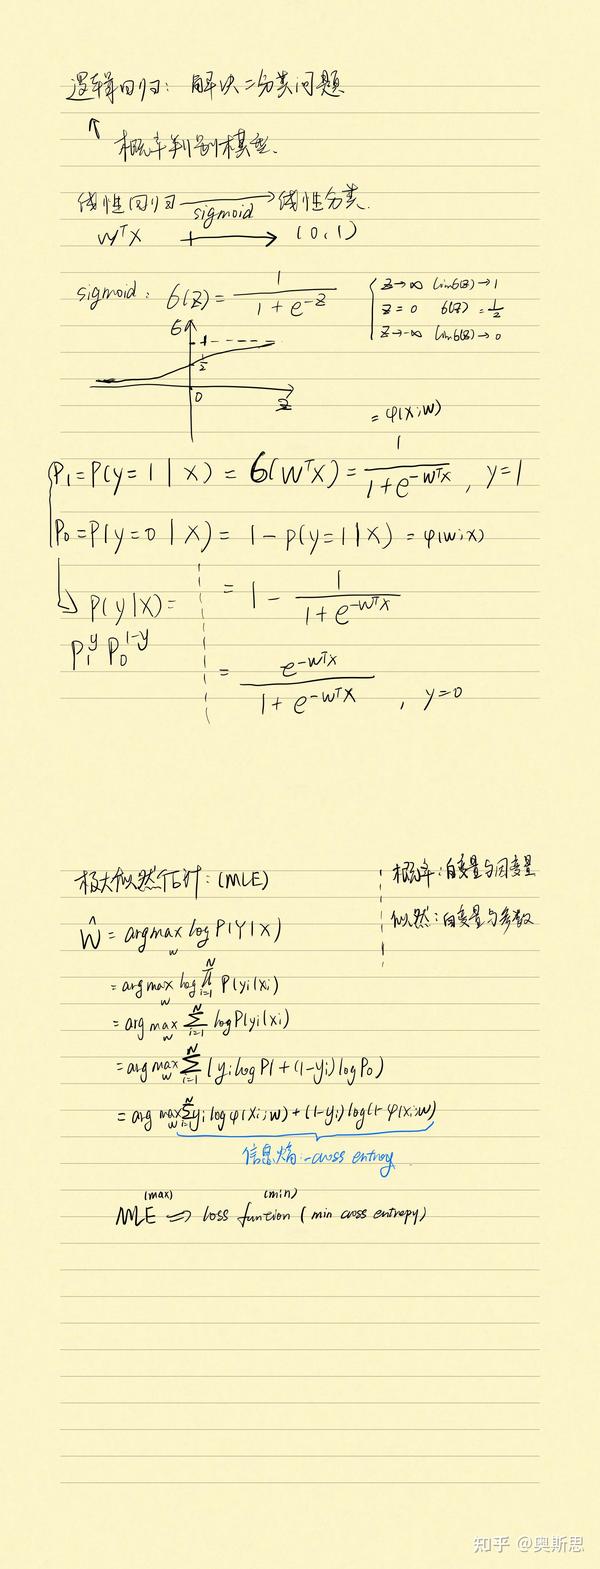 逻辑回归：解决二分类问题
↑
概率判别模型.
线性回归 ⟶ 线性分类.
sigmoid
WᵀX ⟼ (0,1)
sigmoid: σ(z) = 1 / (1 + e^-z)
z→∞ limσ(z)→1
z=0 σ(z)=1/2
z→-∞ limσ(z)→0
σ
1
1/2
0
z
= φ(x;w)
P₁=P(y=1|X) = σ(WᵀX) = 1 / (1+e^-WᵀX) , y=1
P₀=P(y=0|X) = 1-p(y=1|X) = φ(w;x)
= 1 - 1 / (1+e^-WᵀX)
P(y|X)=
P₁^y P₀^1-y
= e^-WᵀX / (1+e^-WᵀX) , y=0
极大似然估计：(MLE)
概率：自变量与因变量
似然：自变量与参数
Ŵ = argmax_w log P(Y|X)
= arg max_w log ∏_{i=1}^N P(yi|xi)
= arg max_w ∑_{i=1}^N logP(yi|xi)
= arg max_w ∑_{i=1}^N (yi log P1 + (1-yi) log P₀)
= arg max_w ∑_{i=1}^N yi log φ(xi;w) + (1-yi) log(1-φ(xi;w)
信息熵：-cross entroy
(max) (min)
MLE ⟹ loss function ( min cross entropy)
知乎 @奥斯思